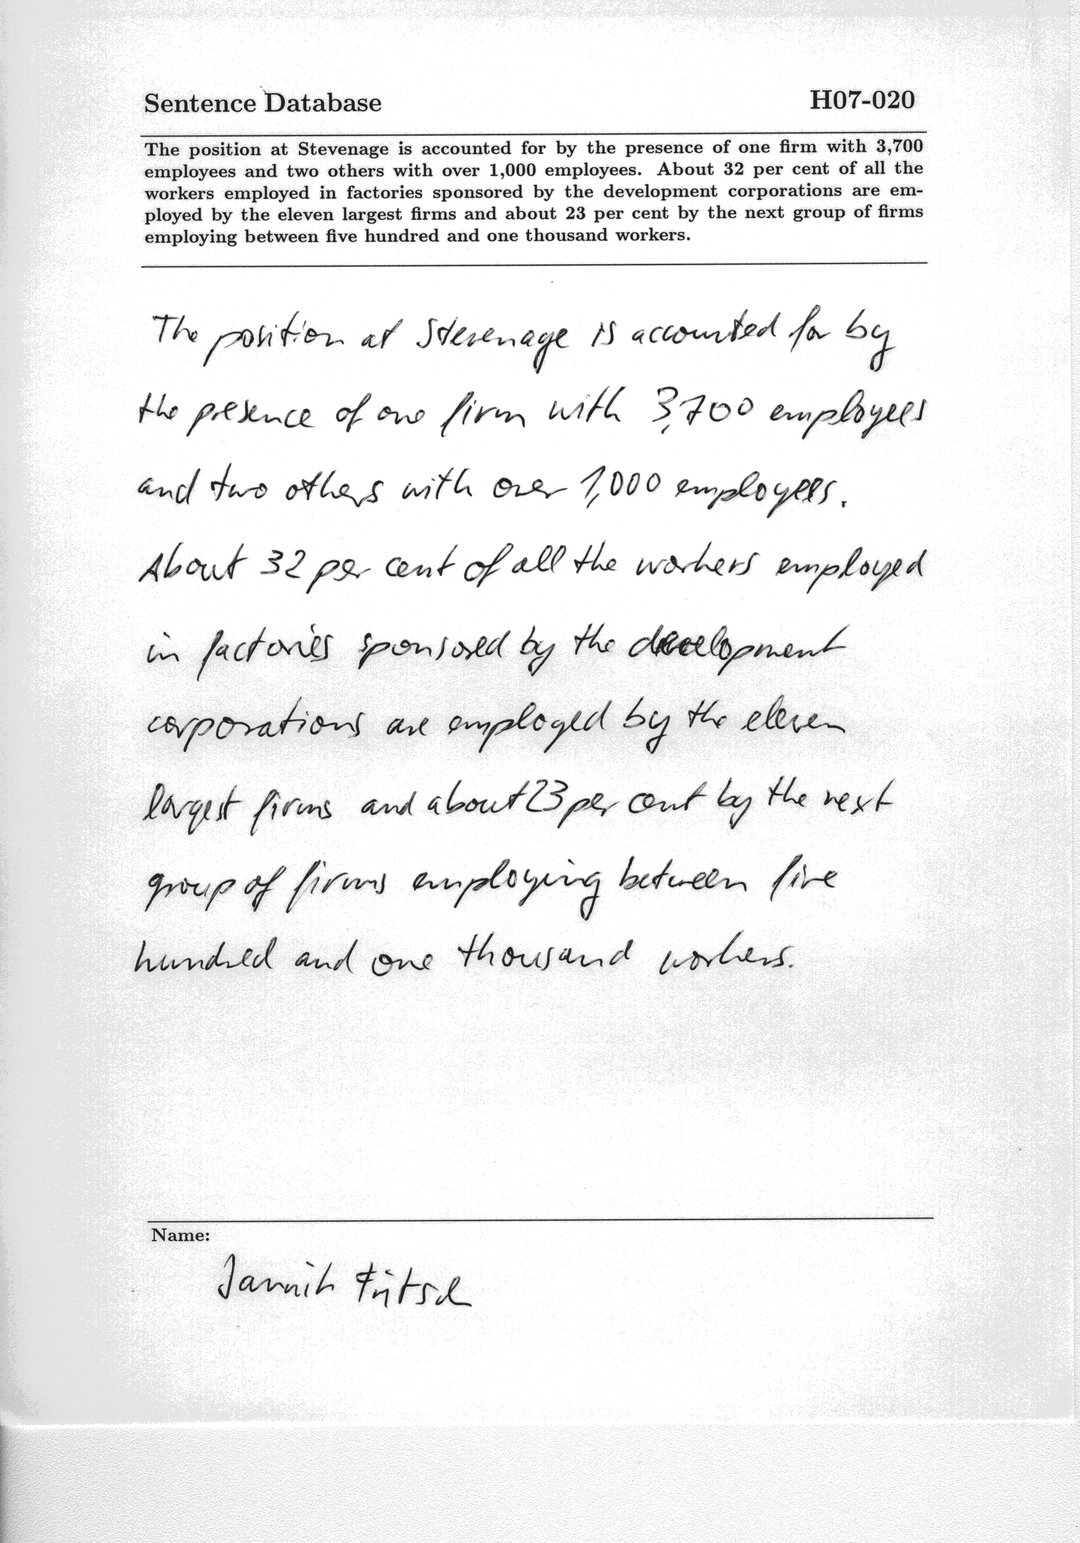 Sentence Database H07-020
The position at Stevenage is accounted for by the presence of one firm with 3,700
employees and two others with over 1,000 employees. About 32 per cent of all the
workers employed in factories sponsored by the development corporations are em-
ployed by the eleven largest firms and about 23 per cent by the next group of firms
employing between five hundred and one thousand workers.
The position at Stevenage is accounted for by
the presence of one firm with 3,700 employees
and two others with over 1,000 employees.
About 32 per cent of all the workers employed
in factories sponsored by the development
corporations are employed by the eleven
largest firms and about 23 per cent by the next
group of firms employing between five
hundred and one thousand workers.
Name:
Jannik